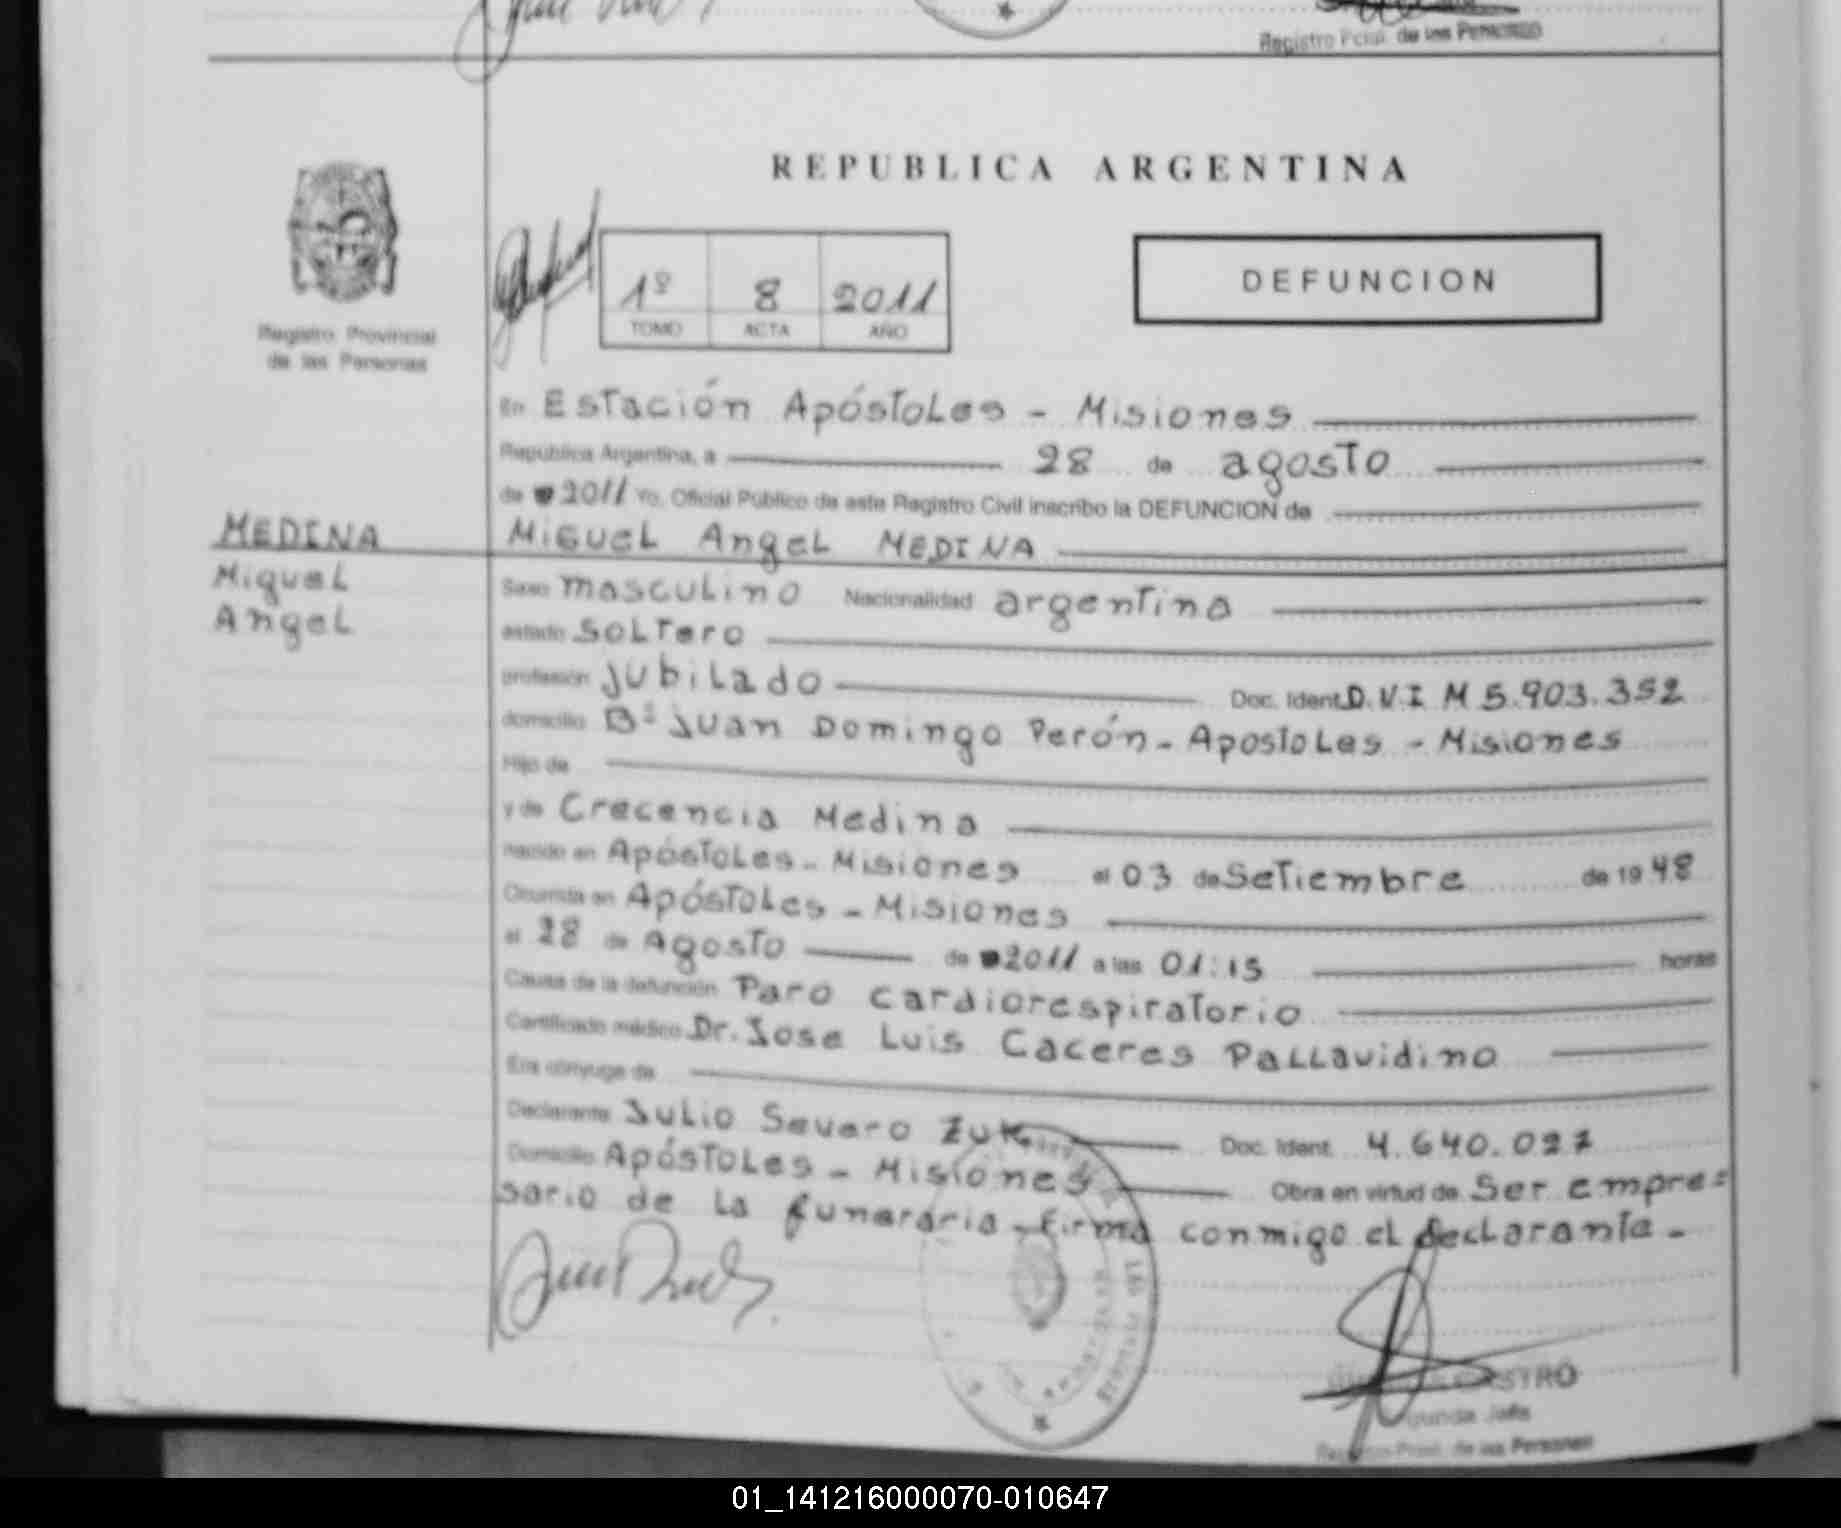 Registro Pcial. de las Personas
REPUBLICA ARGENTINA
Registro Provincial
de las Personas
1º 8 2011
TOMO ACTA AÑO
DEFUNCION
En Estación Apóstoles - Misiones
República Argentina, a 28 de agosto
de 2011 Yo, Oficial Público de este Registro Civil inscribo la DEFUNCION de
MEDINA
Miguel
Angel
Miguel Angel MEDINA
Sexo masculino Nacionalidad argentina
estado soltero
profesión jubilado Doc. Ident. D.N.I M 5.903.352
domicilio Bº Juan Domingo Perón - Apostoles - Misiones
Hijo de
y de Crecencia Medina
nacido en Apóstoles - Misiones el 03 de Setiembre de 1948
Ocurrida en Apóstoles - Misiones
el 28 de Agosto de 2011 a las 01:15 horas
Causa de la defunción Paro cardiorespiratorio
Certificado médico Dr. Jose Luis Caceres Pallavidino
Era cónyuge de
Declarante Julio Severo Zuk Doc. Ident. 4.640.027
Domicilio Apóstoles - Misiones Obra en virtud de Ser empre=
sario de la funeraria - firma conmigo el declarante -
CASTRO
Jefe
de las Personas
01_141216000070-010647